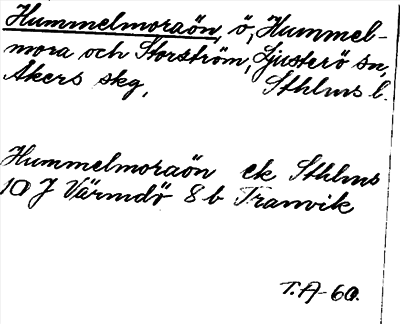 Hummelmoraön, ö, Hummel-
mora och Storström, Ljusterö sn,
Åkers skg, Sthlms l.
Hummelmoraön ek Sthlms
10 J Värmdö 8 b Tranvik
T.A-60.